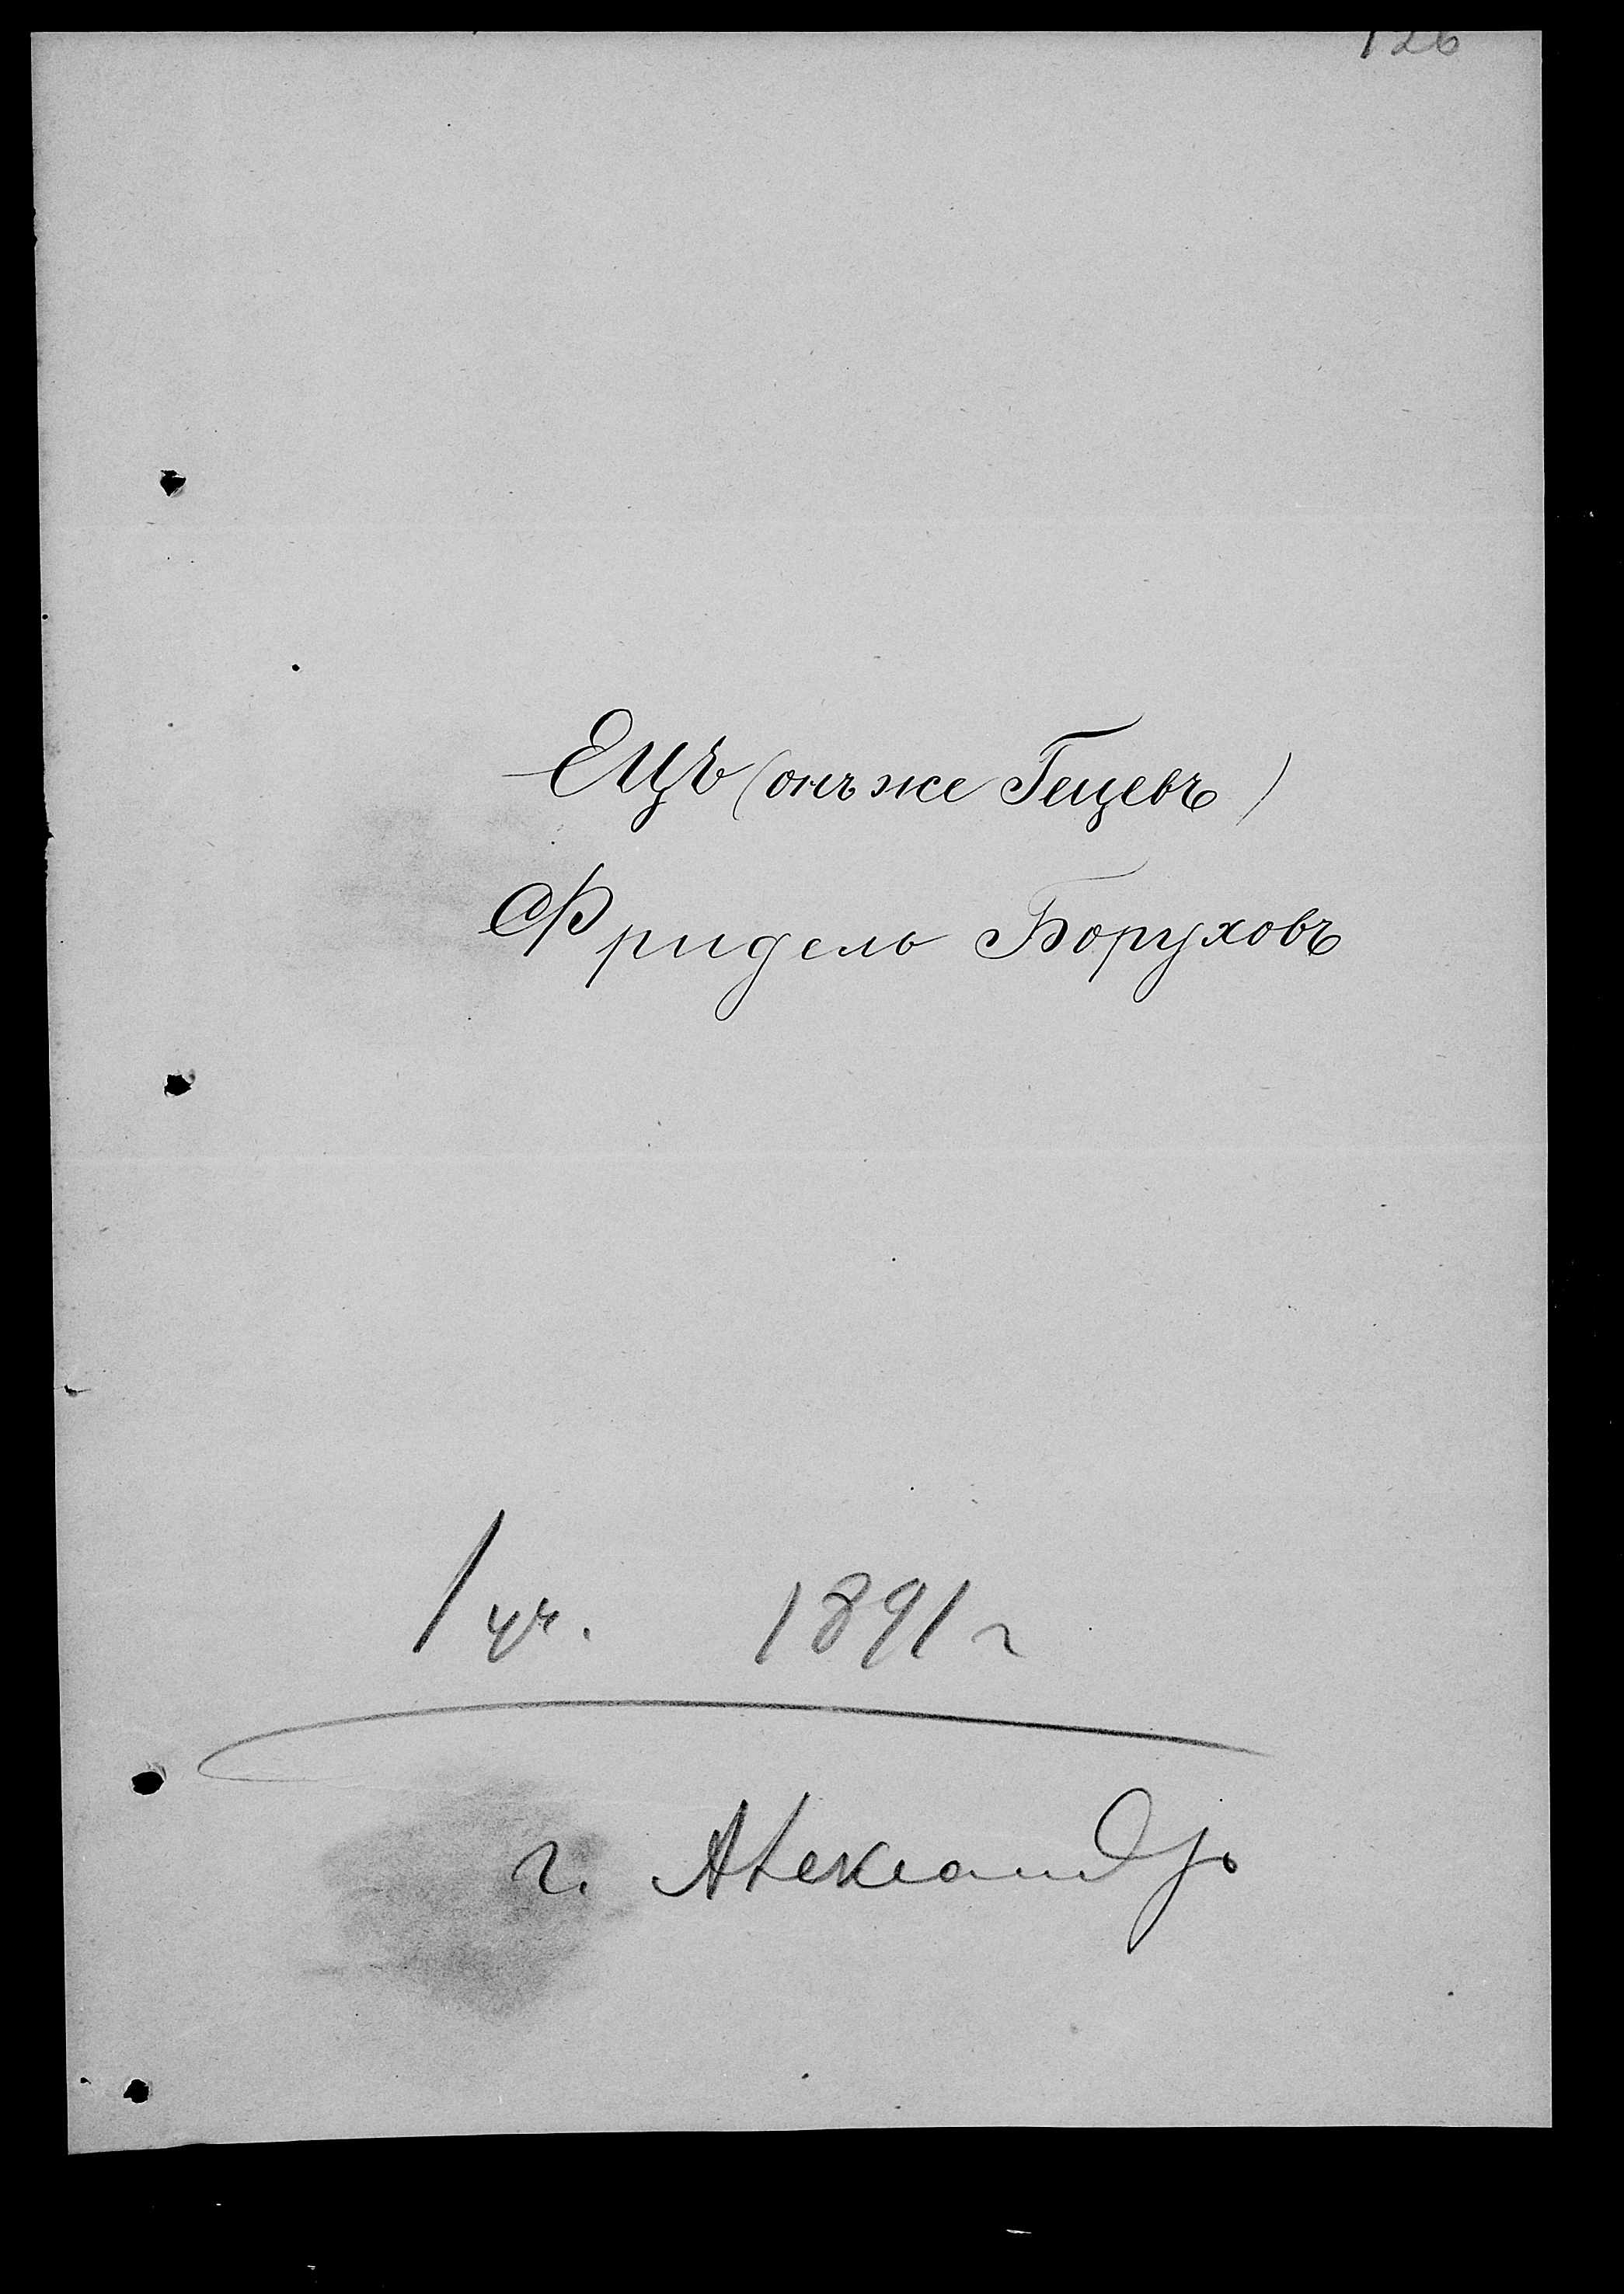 126
Ецъ (онъ же Гецевъ)
Фридель Боруховъ
1 уч. 1891 г
г. Александр